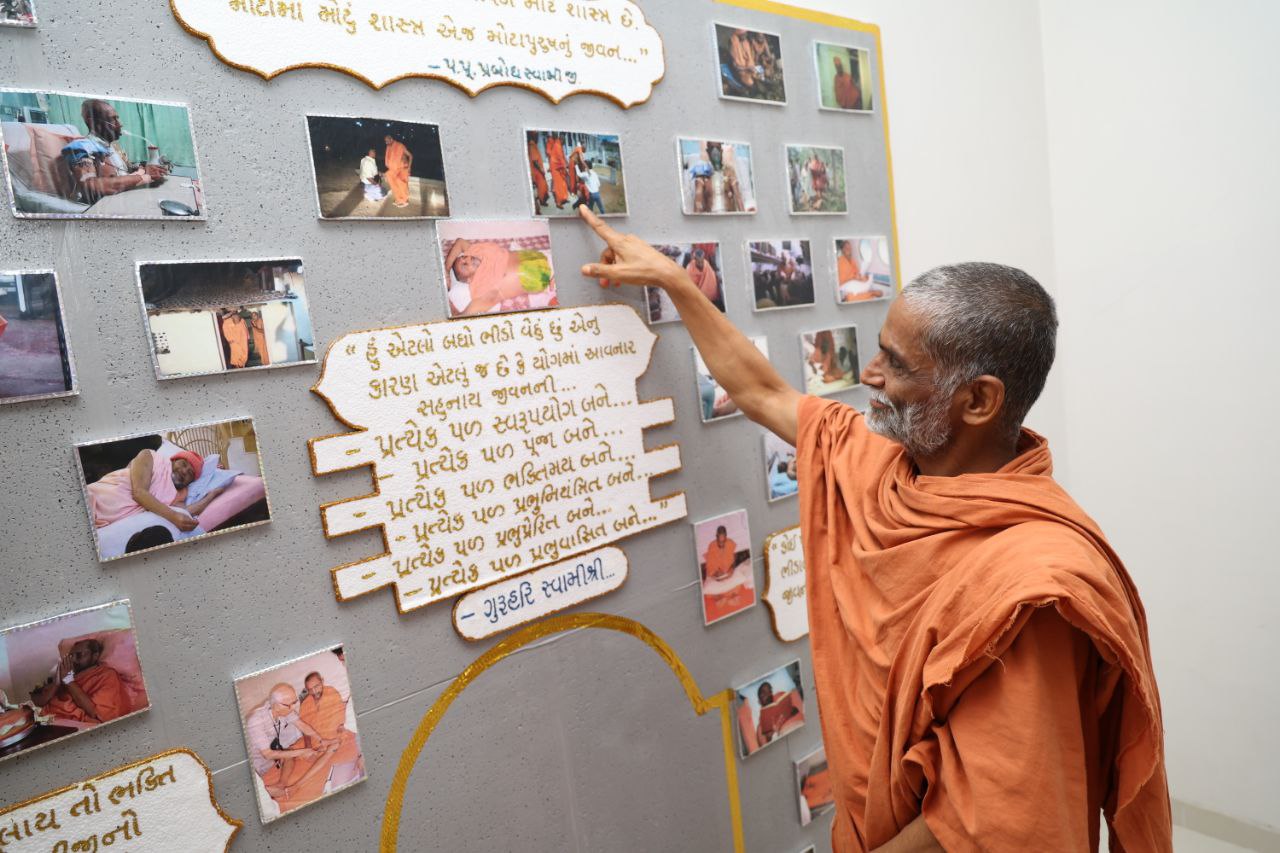 માટે શાસ્ત્ર છે.
મોટામાં મોટું શાસ્ત્ર એજ મોટાપુરુષનું જીવન..."
- પ.પૂ. પ્રબોધસ્વામીજી.
" હું એટલો બધો ભીડો વેઠું છું એનું
કારણ એટલું જ છે કે યોગમાં આવનાર
સહુનાય જીવનની...
- પ્રત્યેક પળ સ્વરૂપયોગ બને...
- પ્રત્યેક પળ પૂજા બને...
- પ્રત્યેક પળ ભક્તિમય બને...
- પ્રત્યેક પળ પ્રભુનિયંત્રિત બને...
- પ્રત્યેક પળ પ્રભુપ્રેરિત બને...
- પ્રત્યેક પળ પ્રભુવાસિત બને..."
- ગુરુહરિ સ્વામીશ્રી...
તો ભક્તિ